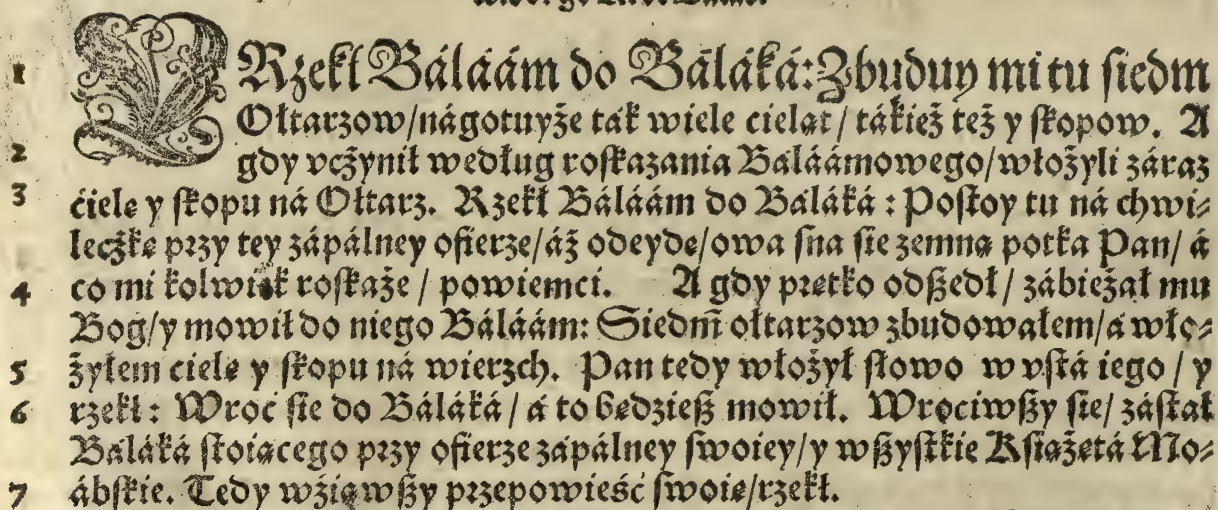 1 Y Rzekł Báláám do Báláká: Zbuduy mi tu siedm
Ołtarzow/nágotuyże ták wiele cieląt/tákież też y skopow. A
2 gdy vczynił według roskazania Baláámowego/włożyli záraz
3 ćielę y skopu ná Ołtarz. Rzekł Báláám do Báláká: Postoy tu ná chwi⸗
leczkę przy tey zápálney ofierze/áż odeydę/owa sna się zemną potka Pan/ á
4 co mi kolwiek roskaże/powiemci. A gdy prętko odszedł/zábieżał mu
Bog/y mowił do niego Báláám: Siedm ołtarzow zbudowałem/á wło⸗
5 żyłem cielę y skopu ná wierzch. Pan tedy włożył słowo w vstá iego/y
6 rzekł: Wroć się do Báláká/á to będziesz mowił. Wrociwszy się/zástał
Baláká stoiącego przy ofierze zápálney swoiey/y wszystkie Książetá Mo⸗
7 ábskie. Tedy wziąwszy przepowieść swoię/rzekł.